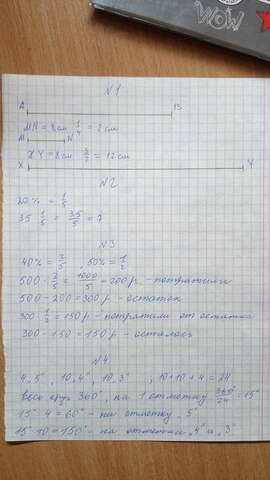 WOW
N1
A B
MN = 8 см · 1/4 = 2 см
M N
XY = 8 см · 3/2 = 12 см
X Y
N2
20% = 1/5
35 · 1/5 = 35/5 = 7
N3
40% = 2/5 , 50% = 1/2
500 · 2/5 = 1000/5 = 200 р. - потратили
500 - 200 = 300 р - остаток
300 · 1/2 = 150 р - потратили от остатка
300 - 150 = 150 р - осталось
N4
4 „5", 10 „4", 10 „3" ; 10+10+4 = 24
весь круг 360°, на 1 отметку 360°/24 = 15°
15° · 4 = 60° - на отметку „5"
15° · 10 = 150° - на отметки „4" и „3"